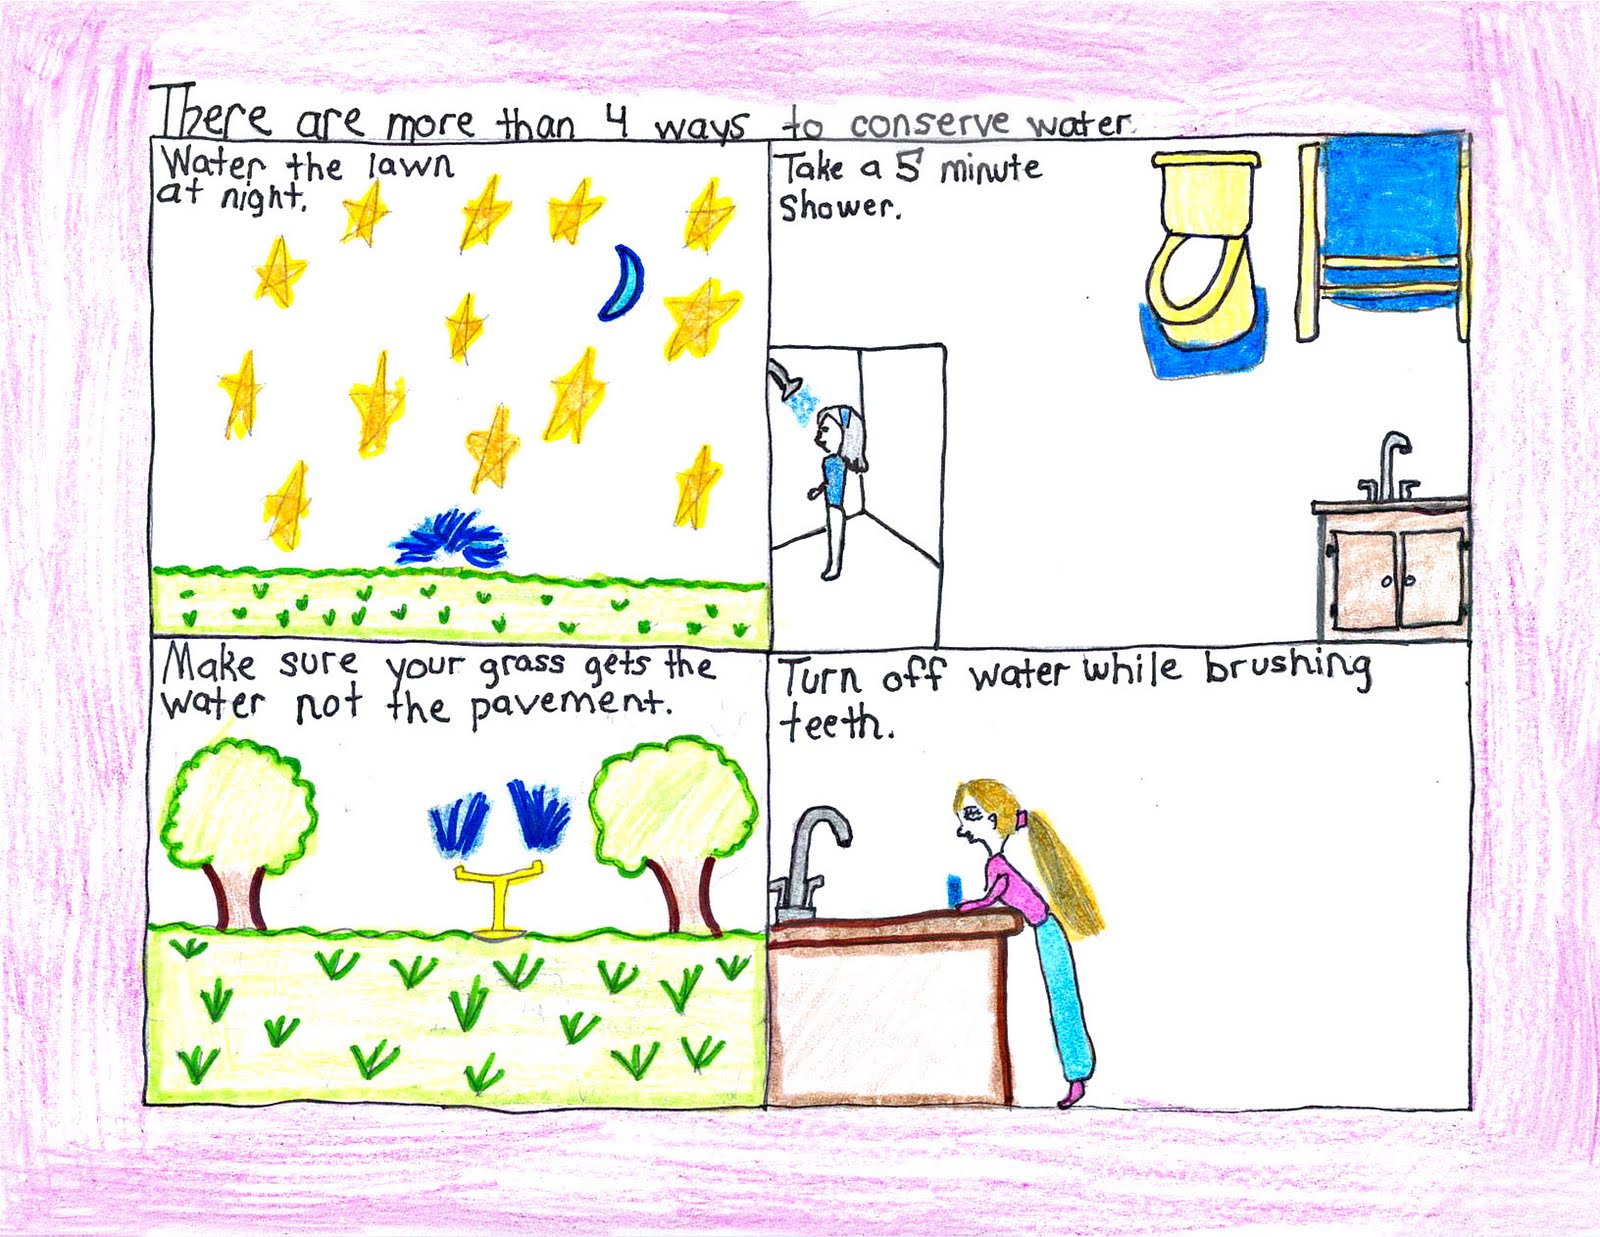 There are more than 4 ways to conserve water.
Water the lawn
at night.
Take a 5 minute
shower.
Make sure your grass gets the
water not the pavement.
Turn off water while brushing
teeth.